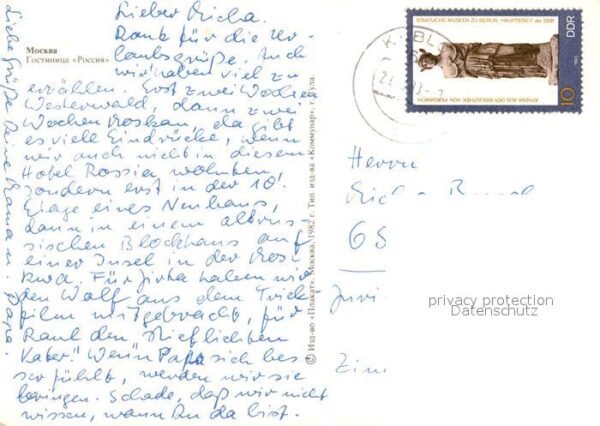 Москва
Гостиница «Россия»
Lieber Micha.
Dank für die Ur-
laubsgrüße. Auch
wir haben viel zu
erzählen. Erst zwei Wochen
Westerwald, dann zwei
Wochen Moskau, da gibt
es viele Eindrücke, wenn
wir auch nicht in diesem
Hotel Rossia wohnten,
sondern erst in der 10.
Etage eines Neubaus,
dann in einem altrus-
sischen Blockhaus auf
einer Insel in der Mos-
kwa. Für haben wir
den Wolf aus dem Trick-
film mitgebracht, für
den "Stieflichen
Kater". Wenn Papa sich bes-
ser fühlt, werden wir sie
bringen. Schade, daß wir nicht
wissen, wann Du da bist.
Liebe Grüße Deine Mama u. Papa.
© Изд-во «Плакат». Москва, 1982 г. Тип. изд-ва «Коммунар», г. Тула.
STAATLICHE MUSEEN ZU BERLIN · HAUPTSTADT der DDR
DDR
1982
10
ATHENA AUS DER BIBLIOTHEK VON PERGAMON
Herrn
privacy protection
Datenschutz